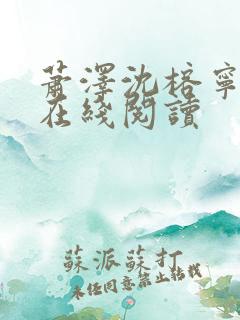 蕭澤沈榕寧
在綫閱讀
蘇派蘇打
未經同意禁止轉載